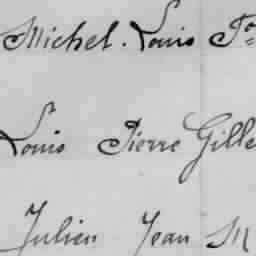 Michel Louis
Louis Pierre Gille
Julien Jean M